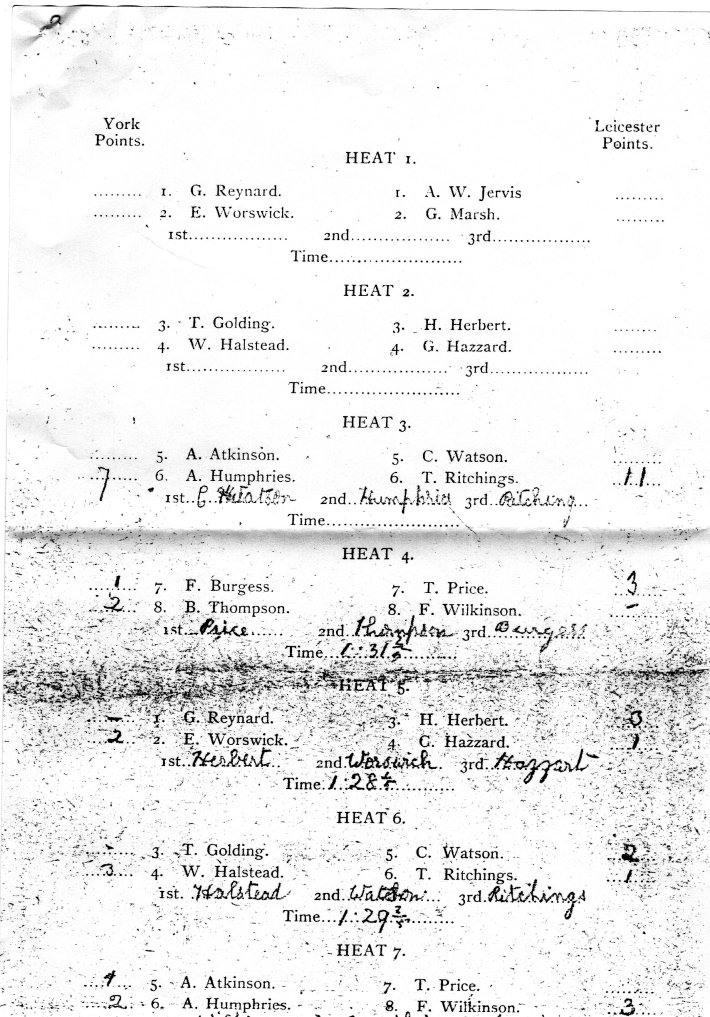 York Leicester
Points. Points.
HEAT 1.
......... 1. G. Reynard. 1. A. W. Jervis .........
......... 2. E. Worswick. 2. G. Marsh. .........
1st.................. 2nd.................. 3rd..................
Time........................
HEAT 2.
......... 3. T. Golding. 3. H. Herbert. ........
......... 4. W. Halstead. 4. G. Hazzard. .........
1st.................. 2nd.................. 3rd..................
Time........................
HEAT 3.
......... 5. A. Atkinson. 5. C. Watson. .........
7 6. A. Humphries. 6. T. Ritchings. 11
1st. C. Watson 2nd Humphries 3rd Ritching
Time........................
HEAT 4.
1 7. F. Burgess. 7. T. Price. 3
2 8. B. Thompson. 8. F. Wilkinson. -
1st. Price 2nd Thompson 3rd Burgess
Time 1:31 2/5
HEAT 5.
- 1. G. Reynard. 3. H. Herbert. 3
2 2. E. Worswick. 4 G. Hazzard. 1
1st. Herbert 2nd Worswich 3rd. Hazzart
Time 1:28 4/5
HEAT 6.
......... 3. T. Golding. 5. C. Watson. 2
3 4. W. Halstead. 6. T. Ritchings. 1
1st. Halstead 2nd Watson 3rd Ritchings
Time 1:29 2/5
HEAT 7.
1 5. A. Atkinson. 7. T. Price. .........
2 6. A. Humphries. 8. F. Wilkinson. 3